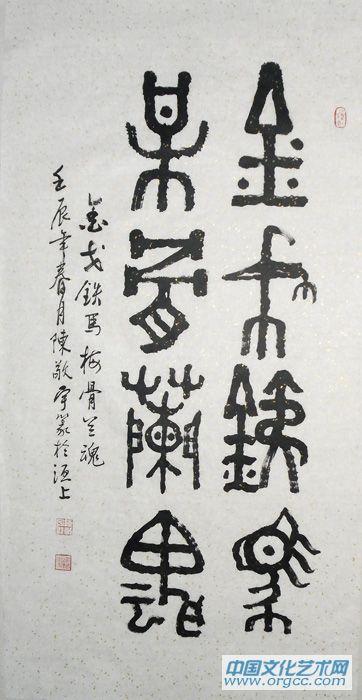 金戈銕馬
某骨蘭魂
金戈鉄馬梅骨兰魂
壬辰年春月陳敬宇篆於洹上
中国文化艺术网
www.orgcc.com